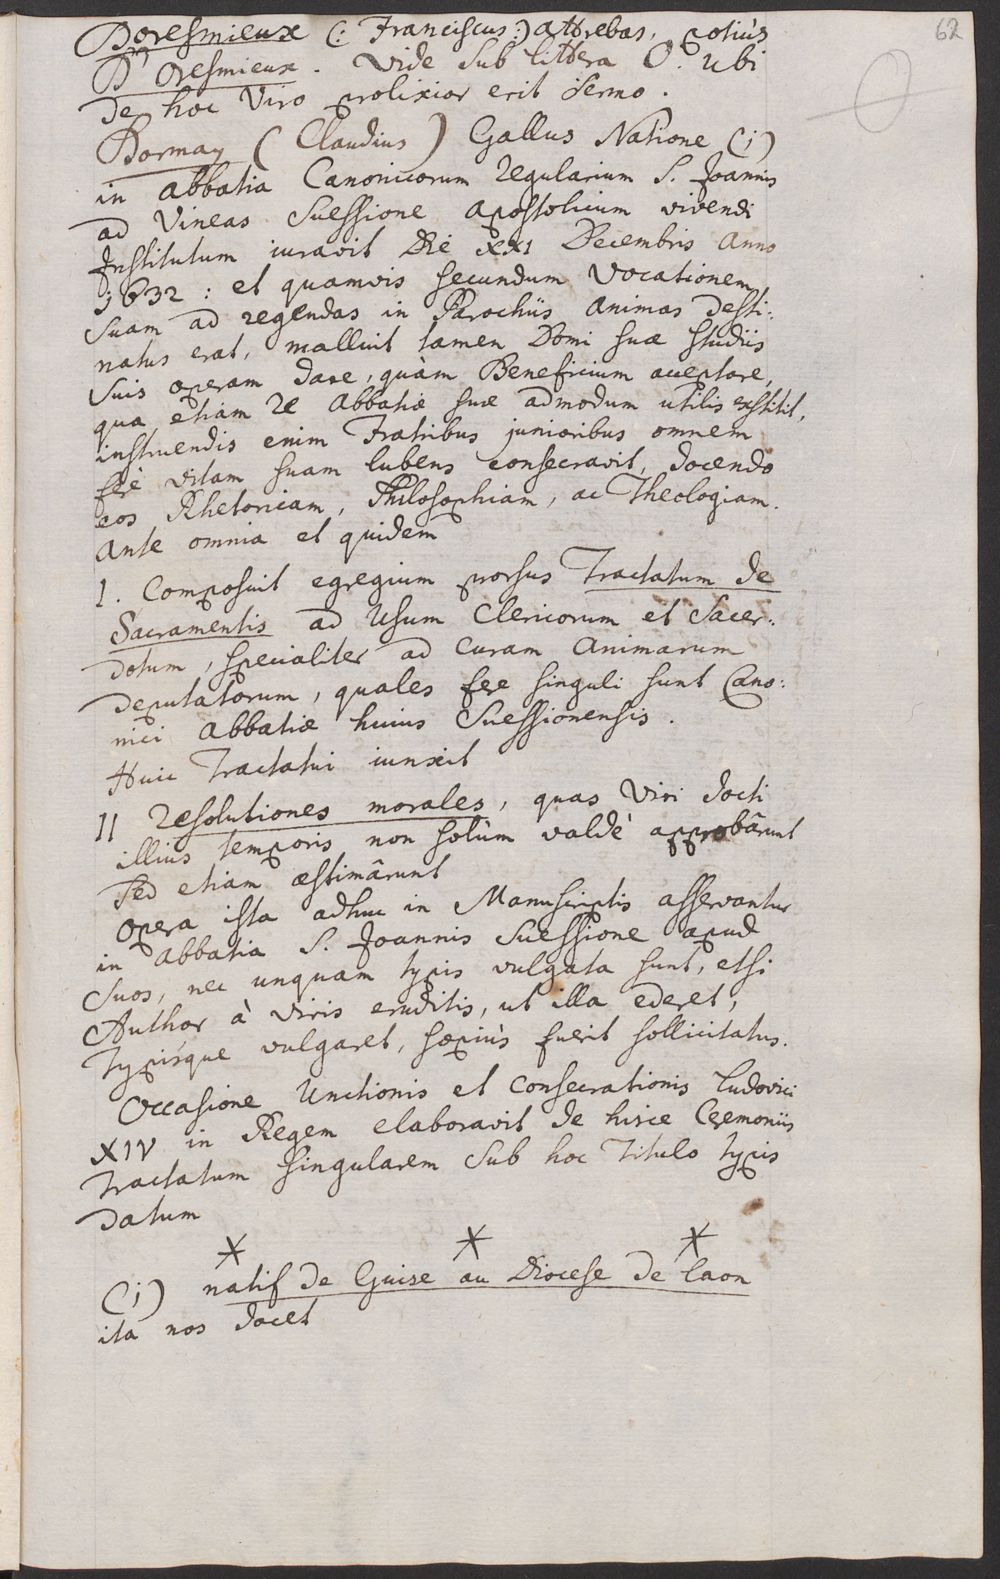 62
Doresmieux (: Franciscus :) attrebas, potiùs
D'Oresmieux. Vide sub littera O. ubi
de hoc Viro prolixior erit sermo.
Dormay (Claudius) Gallus Natione (i)
in abbatia Canonicorum regularium S. Joannis
ad Vineas Suessione apostolicum vivendi
Institutum iuravit Die XXI Decembris anno
1632: et quamvis secundum Vocationem
suam ad regendas in Parochiis animas desti:
natus erat, malluit tamen Domi suæ studiis
suis operam dare, quàm Beneficium acceptare,
qua etiam re abbatiæ suæ admodum utilis exstitit,
instruendis enim Fratribus junioribus omnem
ferè vitam suam lubens consecravit, docendo
eos Rhetoricam, Philosophiam, ac Theologiam.
ante omnia et quidem
I. Composuit egregium prorsus Tractatum de
Sacramentis ad Usum Clericorum et Sacer:
dotum, specialiter ad curam animarum
deputatorum, quales fere singuli sunt Cano:
nici abbatiæ huius Suessionensis.
Huic Tractatui iunxit
II resolutiones morales, quas Viri docti
illius temporis non solùm valdè approbârunt
sed etiam æstimârunt
opera ista adhuc in Manuscriptis asservantur
in abbatia S. Joannis Suessione apud
suos, nec unquam typis vulgata sunt, etsi
Author à viris eruditis, ut illa ederet,
typisque vulgaret, sæpiùs fuerit sollicitatus.
Occasione Unctionis et consecrationis Ludovici
XIV in Regem elaboravit de hisce Ceremoniis
tractatum singularem sub hoc Titulo typis
datum
* * *
(i) natif de Guise au Diocese de Laon
ita nos docet